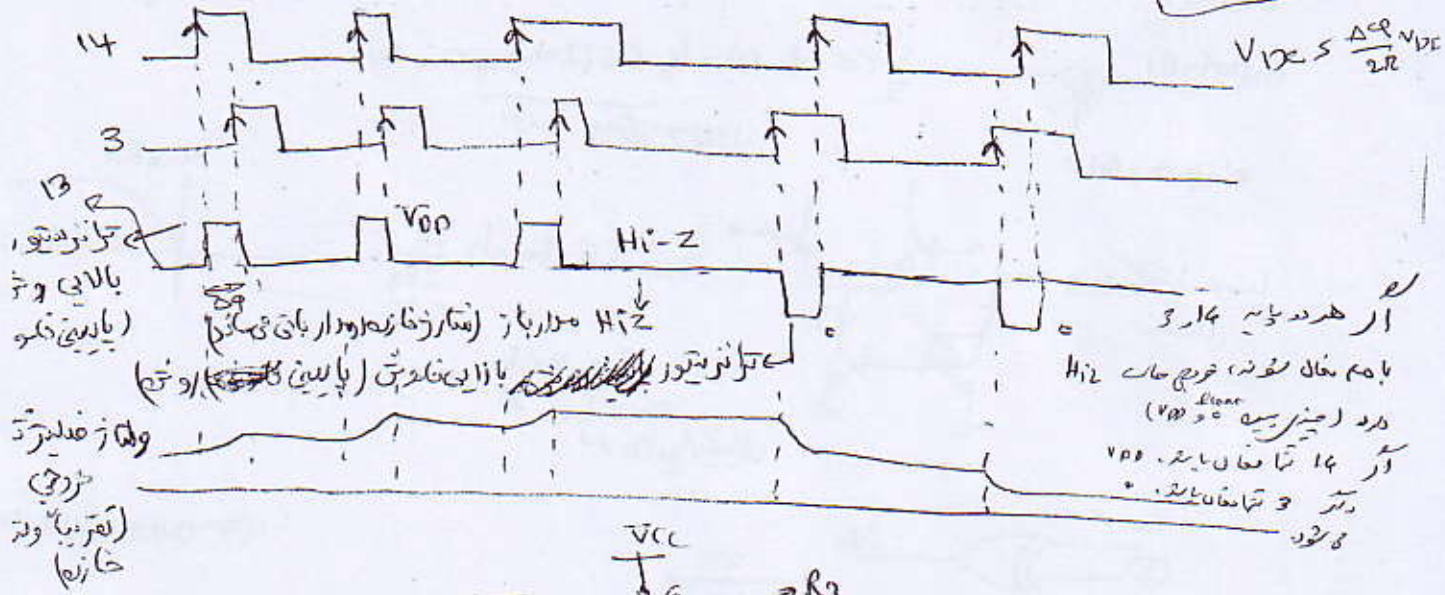 14
V DC = Δφ/2π V DC
3
13
ترانزیستور
VDD
Hi-Z
بالایی
Δφ
(پایینی
HiZ مدار باز (ولتاژ خازن در مدار باقی می ماند)
ترانزیستور بالایی خاموش (پایینی روشن)
0
0
اگر هر دو پایه 14 و 3
با هم فعال شوند، خروجی حالت HiZ
دارد (چیزی بین 0 و VDD)
اگر 14 تنها فعال باشد، VDD
و اگر 3 تنها فعال باشد، 0
می شود.
ولتاژ فیلتر
خروجی
(تقریبا ولتاژ
خازن)
VCC
R2